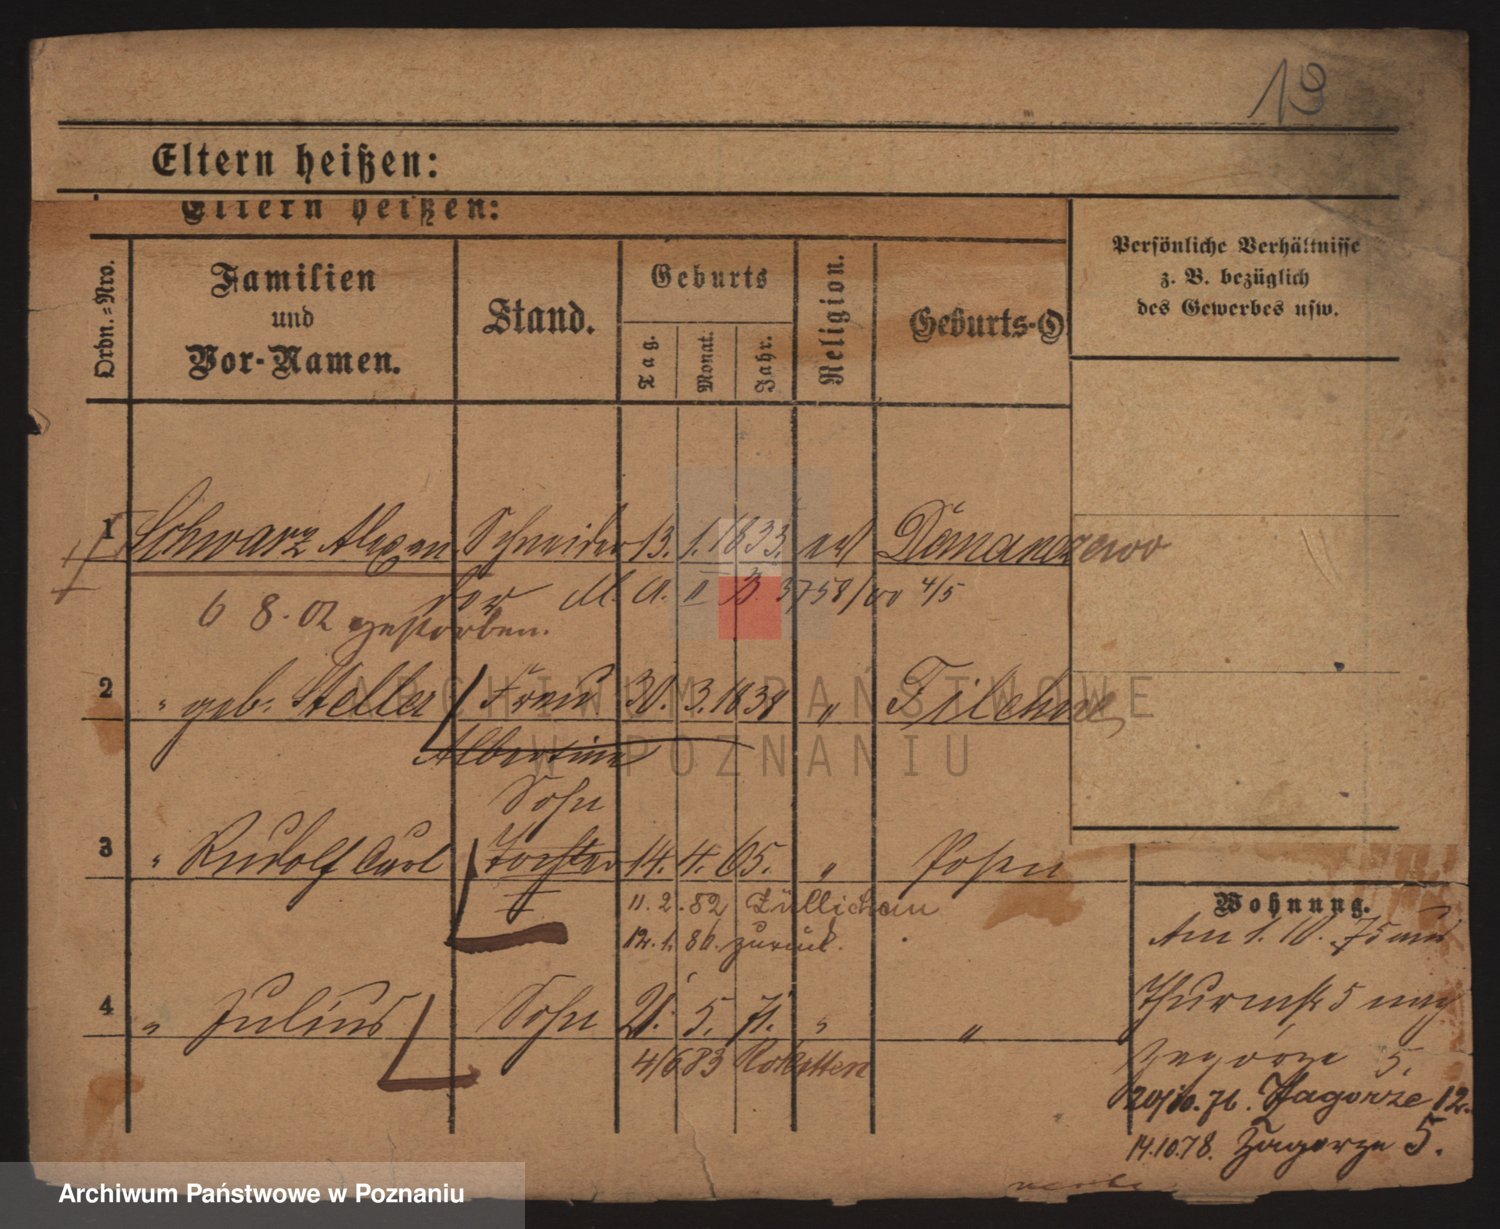 13
Eltern heißen:
Eltern heißen:
Ordn.=Nro.
Familien
und
Vor-Namen.
Stand.
Geburts
Tag.
Monat.
Jahr.
Religion.
Geburts-O
Persönliche Verhältnisse
z. B. bezüglich
des Gewerbes usw.
1 Schwarz Schneider 13. 1. 1833. Domanzewo
M. A. II B 3758/00 4/5
6 8. 02 gestorben.
2 " geb. Steller Frau 30. 3. 1838 " Filehne
Albertine
Sohn
3 " Rudolf Carl 14. 4. 65. " Posen
11. 2. 82 Züllichau
12. 1. 86. zurück.
4 " Julius Sohn 21. 5. 71. " "
4/6 83 Rokitten
Wohnung.
Am 1. 10. 75
Thurmstr 5
Zagorze 5.
20/10. 76. Zagorze 12.
14.10.78. Zagorze 5.
ARCHIWUM PAŃSTWOWE
W POZNANIU
Archiwum Państwowe w Poznaniu